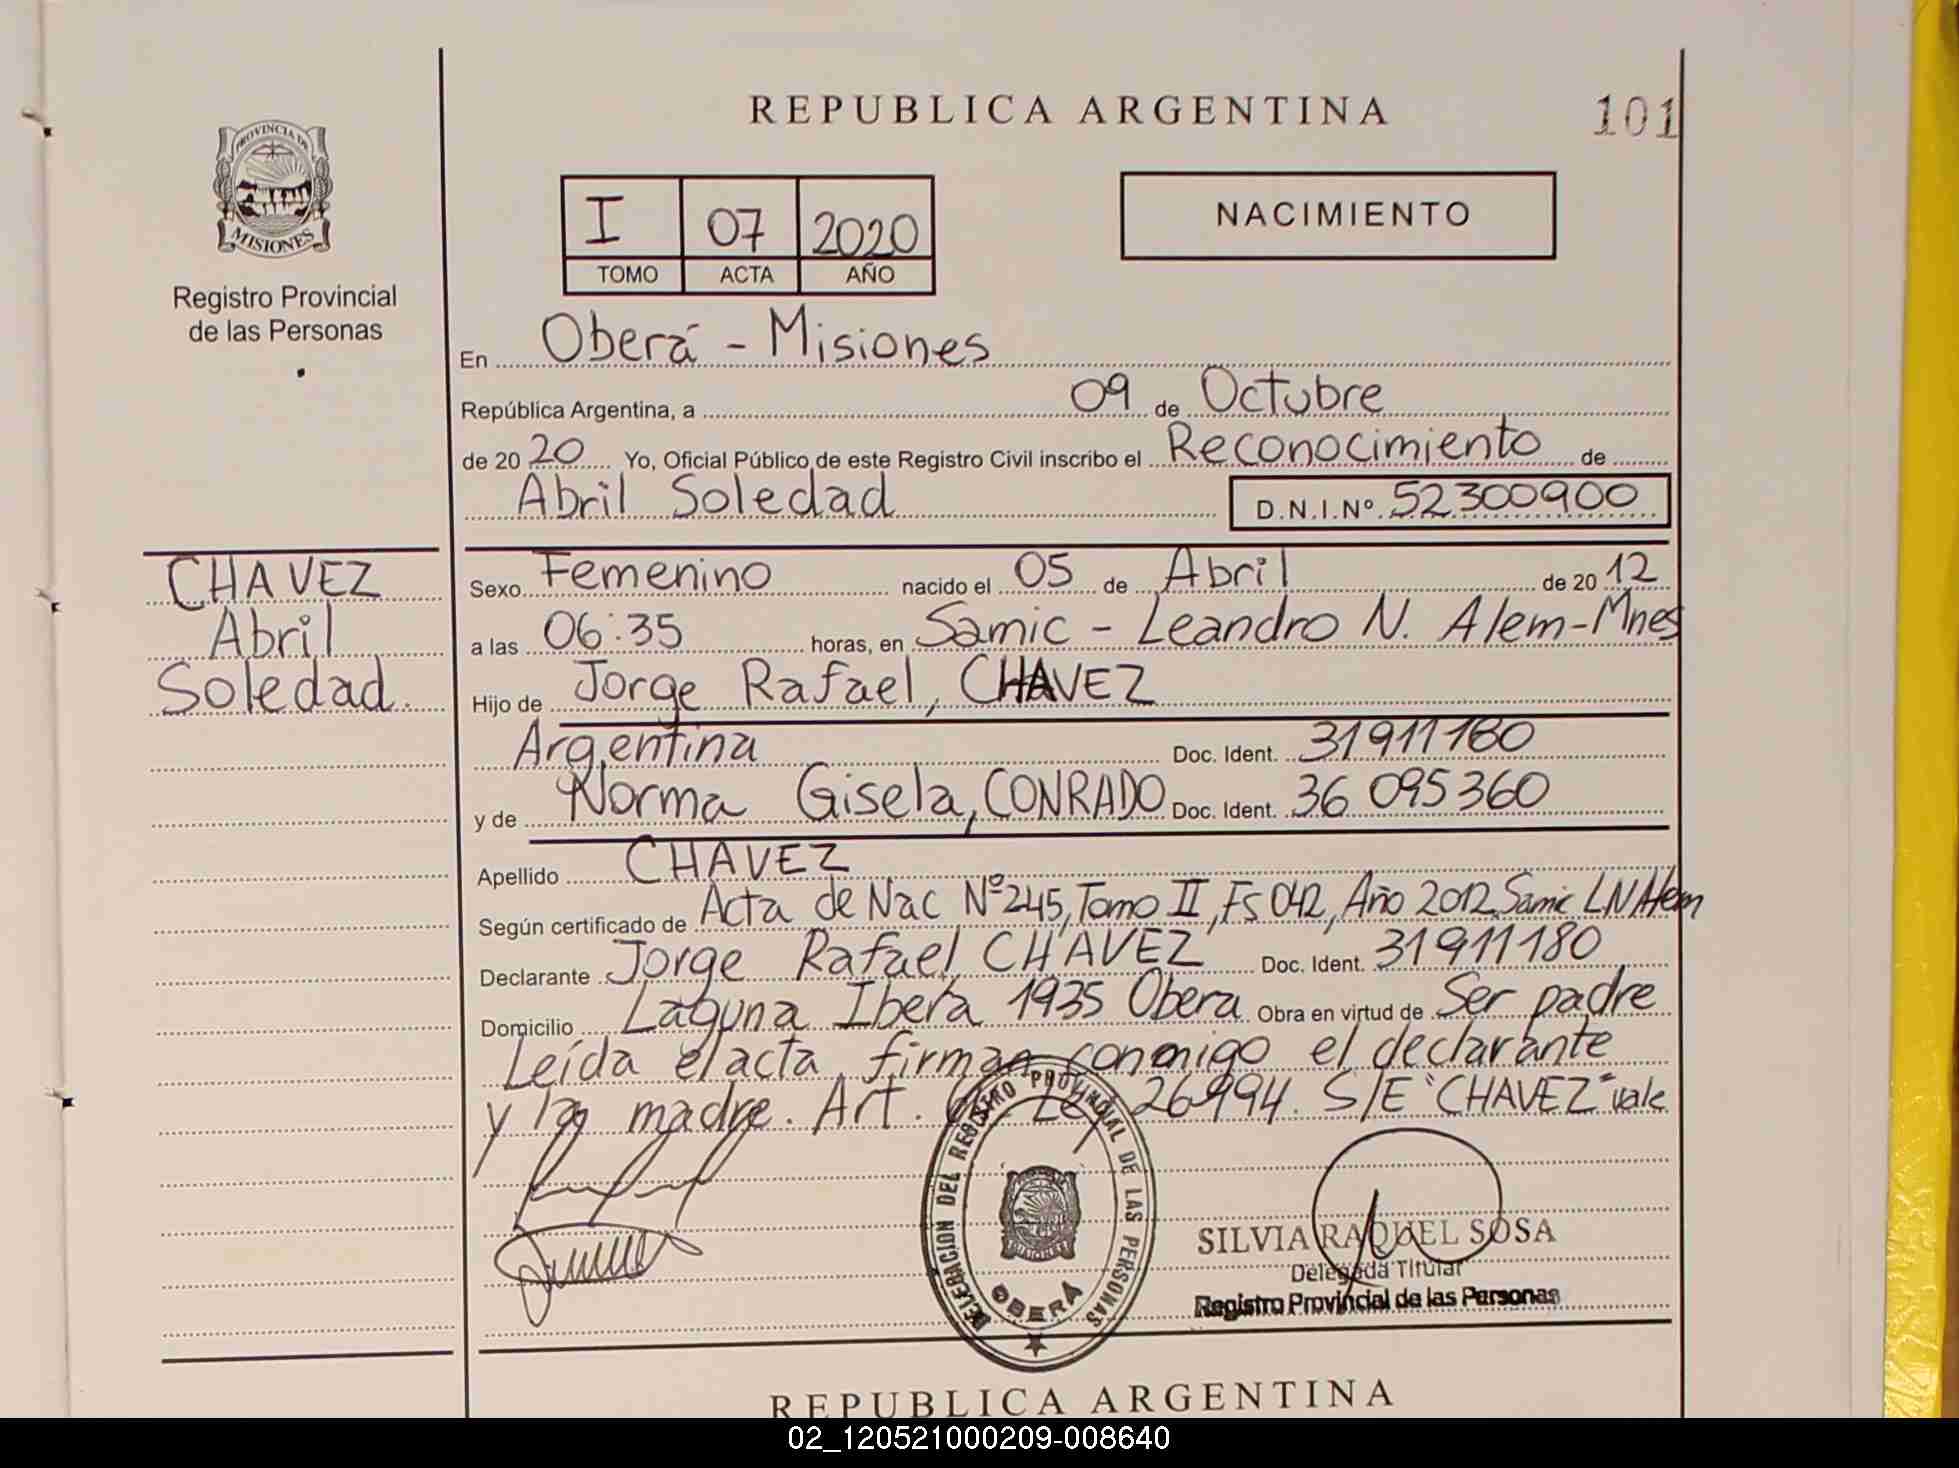 REPUBLICA ARGENTINA
101
PROVINCIA DE
MISIONES
Registro Provincial
de las Personas
I 07 2020
TOMO ACTA AÑO
NACIMIENTO
En Oberá - Misiones
República Argentina, a 09 de Octubre
de 20 20 Yo, Oficial Público de este Registro Civil inscribo el Reconocimiento de
Abril Soledad D.N.I.Nº. 52300900
CHAVEZ
Abril
Soledad.
Sexo Femenino nacido el 05 de Abril de 20 12
a las 06:35 horas, en Samic - Leandro N. Alem-Mnes
Hijo de Jorge Rafael, CHAVEZ
Argentina Doc. Ident. 31911180
y de Norma Gisela, CONRADO Doc. Ident. 36 095360
Apellido CHAVEZ
Según certificado de Acta de Nac Nº245, Tomo II, Fs 042, Año 2012 Samic LNAlem
Declarante Jorge Rafael CHAVEZ Doc. Ident. 31911180
Domicilio Laguna Iberá 1935 Obera Obra en virtud de Ser padre
Leída el acta, firman conmigo el declarante
y la madre. Art. Ley 26994. S/E "CHAVEZ" vale
DELEGACION DEL REGISTRO PROVINCIAL DE LAS PERSONAS
OBERÁ
SILVIA RAQUEL SOSA
Delegada Titular
Registro Provincial de las Personas
REPUBLICA ARGENTINA
02_120521000209-008640